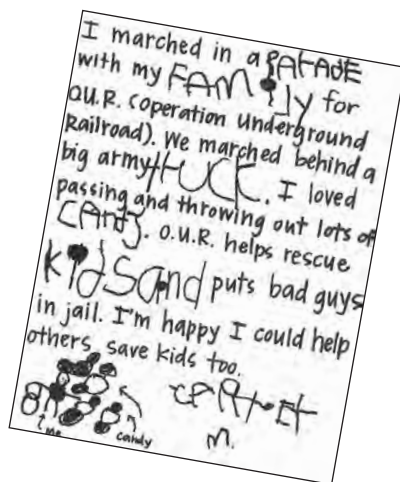 I marched in a PARADE
with my FAMily for
O.U.R. (operation underground
Railroad). We marched behind a
big army truck. I loved
passing and throwing out lots of
CANdy. O.U.R. helps rescue
kidsand puts bad guys
in jail. I'm happy I could help
others save kids too.
me
candy
M.